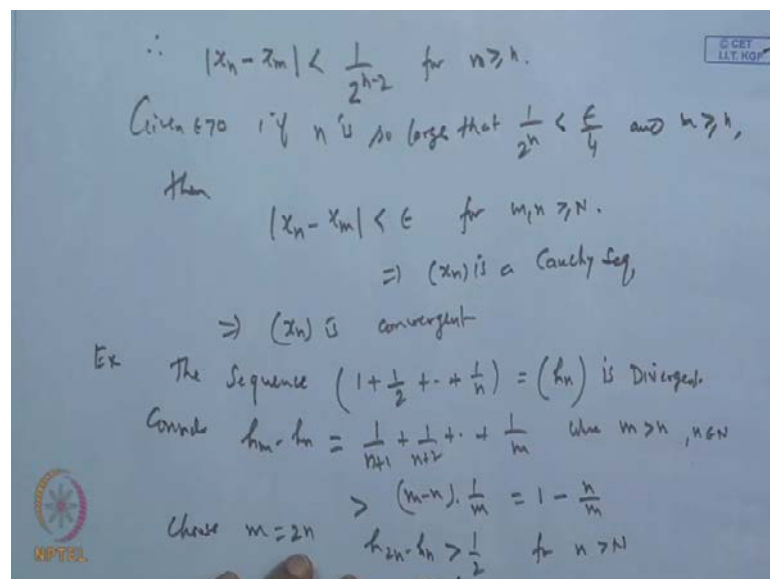 ∴ |xₙ - xₘ| < 1/2ⁿ⁻² for m ≥ n.
© CET
I.I.T. KGP
Given ε>0 if n is so large that 1/2ⁿ < ε/4 and m ≥ n,
then
|xₙ - xₘ| < ε for m, n ≥ N.
⇒ (xₙ) is a Cauchy Seq,
⇒ (xₙ) is convergent
Ex The Sequence (1 + 1/2 + ·· + 1/n) = (hₙ) is Divergent.
Consider hₘ - hₙ = 1/(n+1) + 1/(n+2) + ·· + 1/m where m > n, n ∈ N
> (m-n) · 1/m = 1 - n/m
Choose m = 2n h₂ₙ - hₙ > 1/2 for n > N
NPTEL